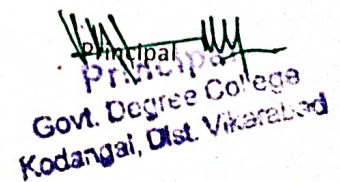 Principal
Principal
Govt. Degree College
Kodangal, Dist. Vikarabad